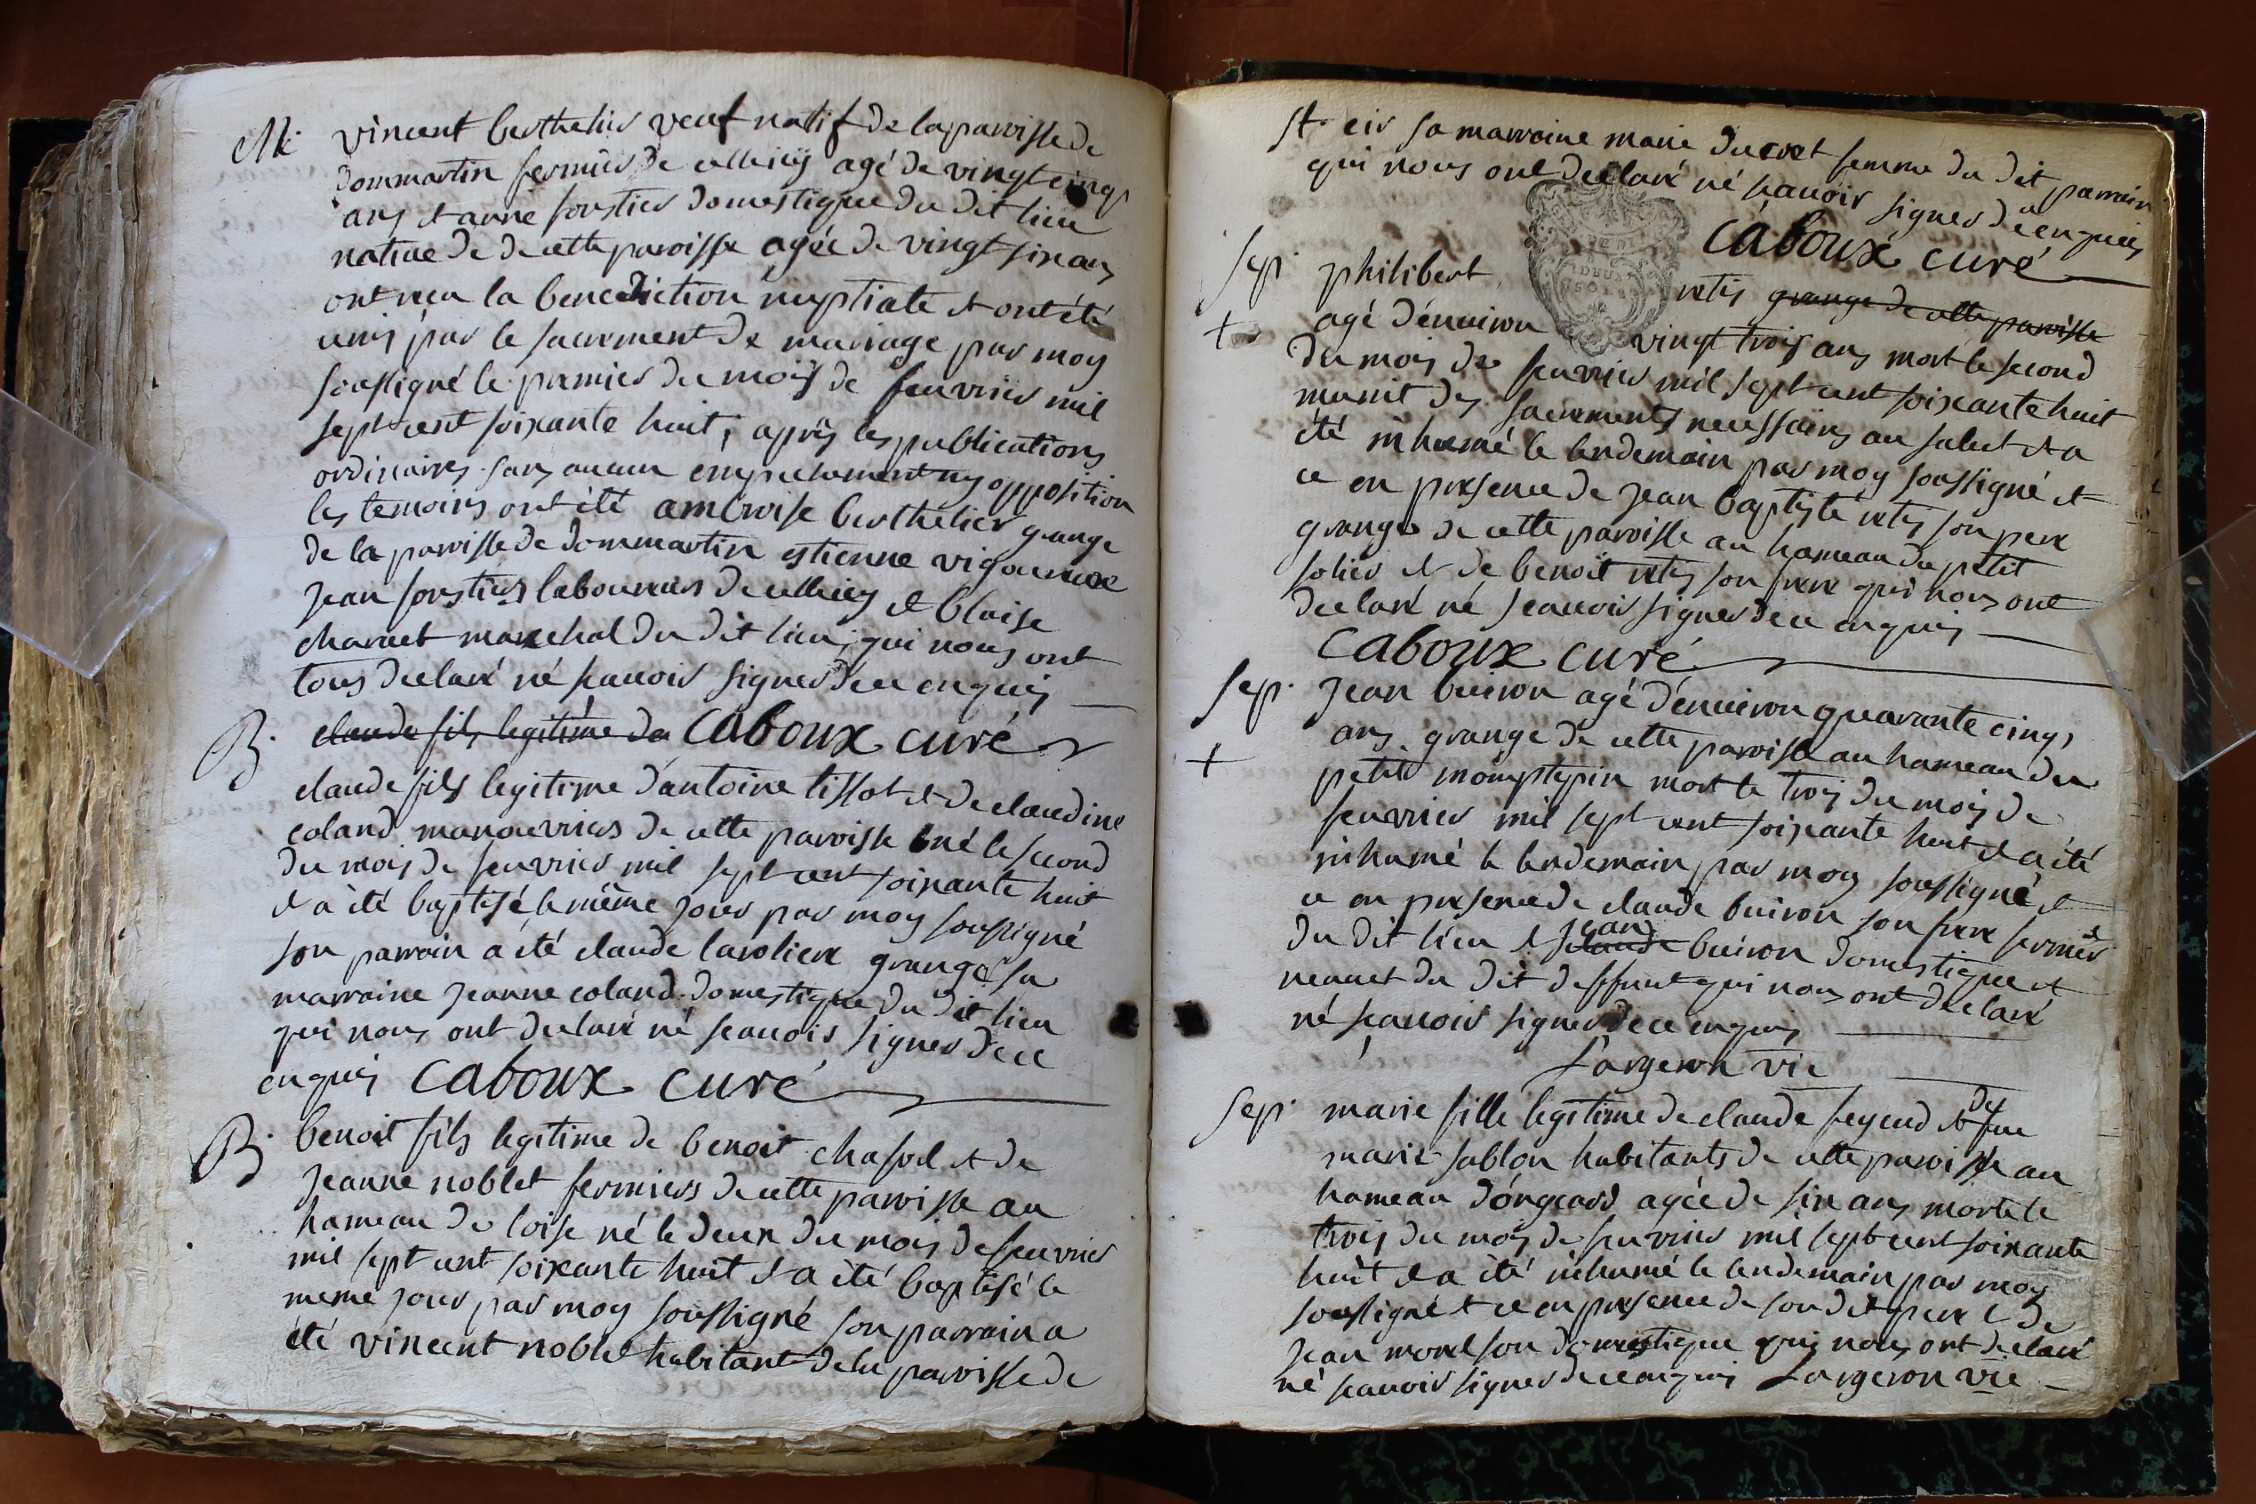 M. vincent berthelier veuf natif de la paroisse de
dommartin fermier de cette agé de vingt cinq
ans et anne foustier domestique du dit lieu
native de de cette paroisse agée de vingt six ans
ont reçu la benediction nuptiale et ont été
unis par le sacrement de mariage par moy
soussigné le premier du mois de feuvrier mil
sept cent soixante huit; après les publications
ordinaires sans aucun empechement ny opposition
les temoins ont été ambroise berthelier grange
de la paroisse de dommartin estienne vigoureux
jean foustier laboureurs de et blaise
charvet marechal du dit lieu, qui nous ont
tous declaré né scauoir signer de ce enquis
B. claude fils legitime de caboux curé
claude fils legitime d'antoine tissot et de claudine
coland manouvriers de cette paroisse né le second
du mois de feuvrier mil sept cent soixante huit
et a été baptisé le même jour par moy soussigné
son parrain a été claude laroliere granger sa
marraine jeanne coland domestique du dit lieu
qui nous ont declaré né scauoir signer de ce
enquis caboux curé
B. benoit fils legitime de benoit chasfoel et de
jeanne noblet fermiers de cette paroisse au
hameau de loise né le deux du mois de feuvrier
mil sept cent soixante huit et a été baptisé le
meme jour par moy soussigné son parrain a
été vincent noblet habitant de la paroisse de
st cir sa marraine marie ducret femme du dit parrain
qui nous ont declaré né scauoir signer de ce enquis
caboux curé
sep. philibert retis grange de cette paroisse
+ agé d'enuiron vingt trois ans mort le second
du mois de feuvrier mil sept cent soixante huit
munit des sacrements necessaires au salut et a
été inhumé le lendemain par moy soussigné et
ce en presence de jean baptiste retis son pere
granger de cette paroisse au hameau du petit
solier et de benoit retis son frere qui nous ont
declaré né scauoir signer de ce enquis
caboux curé
sep. jean buiron agé d'enuiron quarante cinq
+ ans grange de cette paroisse au hameau du
petit momptepin mort le trois du mois de
feuvrier mil sept cent soixante huit et a été
inhumé le lendemain par moy soussigné et
ce en presence de claude buiron son frere fermier
du dit lieu et jean claude buiron domestique et
neuuet du dit deffunt qui nous ont declaré
né scauoir signer de ce enquis
Largeron vic
sep. marie fille legitime de claude feyeud et de fue
marie sablon habitants de cette paroisse au
hameau d'ongeard agée de six ans morte le
trois du mois de feuvrier mil sept cent soixante
huit et a été inhumé le lendemain par moy
soussigné et ce en presence de son dit pere et de
jean morel son domestique qui nous ont declaré
né scauoir signer de ce enquis Largeron vic